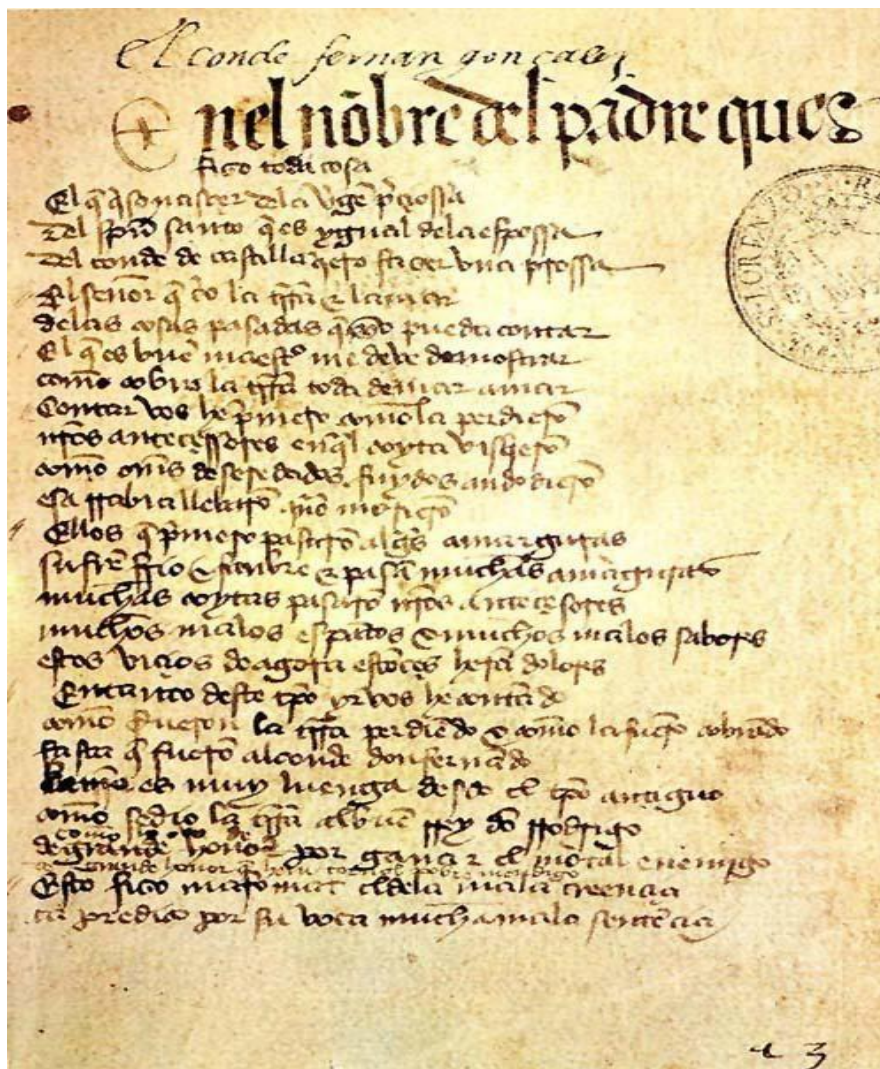 El conde fernan gonçalez
En el nõbre del padre que es
fizo toda cosa
El q̃ q̃so nasçer dela vgẽ p̃çiossa
del spũ santo q̃ es ygual dela espossa
del conde de castilla q̃ero façer vna prossa
El señor q̃ crio la trra & la mar
delas cosas pasadas q̃ yo pueda contar
El q̃ es buẽ maestro me debe demostrar
como cobro la trra toda de mar a mar
Contar vos he p̃mero como la perdierõ
nros anteçessores en q̃l coyta visq̃erõ
como omes deseredados fuydos andodierõ
esa rrabia llebarõ q̃ no morierõ
Ellos q̃ p̃mero pasarõ amarguras
sufriẽ frrio & fanbre & pasã muchas amarguras
muchas coytas pasarõ nros anteçesores
muchos malos espãtos & muchos malos sabores
estos viçios de agora estõçes herã dolores
En tanto deste tpõ yr vos he contãdo
como fueron la trra perdiẽdo & como la fuerõ cobrãdo
fasta q̃ fuerõ al conde don fernãdo
es muy luenga desde el tpõ antiguo
como se dio la trra al buẽ rrey dõ rrodrigo
como de
de grande honor por ganar el mortal enemigo
de grande honor q̃ hera el pobre mendigo
Esto fizo mafomat el dela mala creençia
ca predico por su boca mucha mala sentẽçia
S. LORENZO